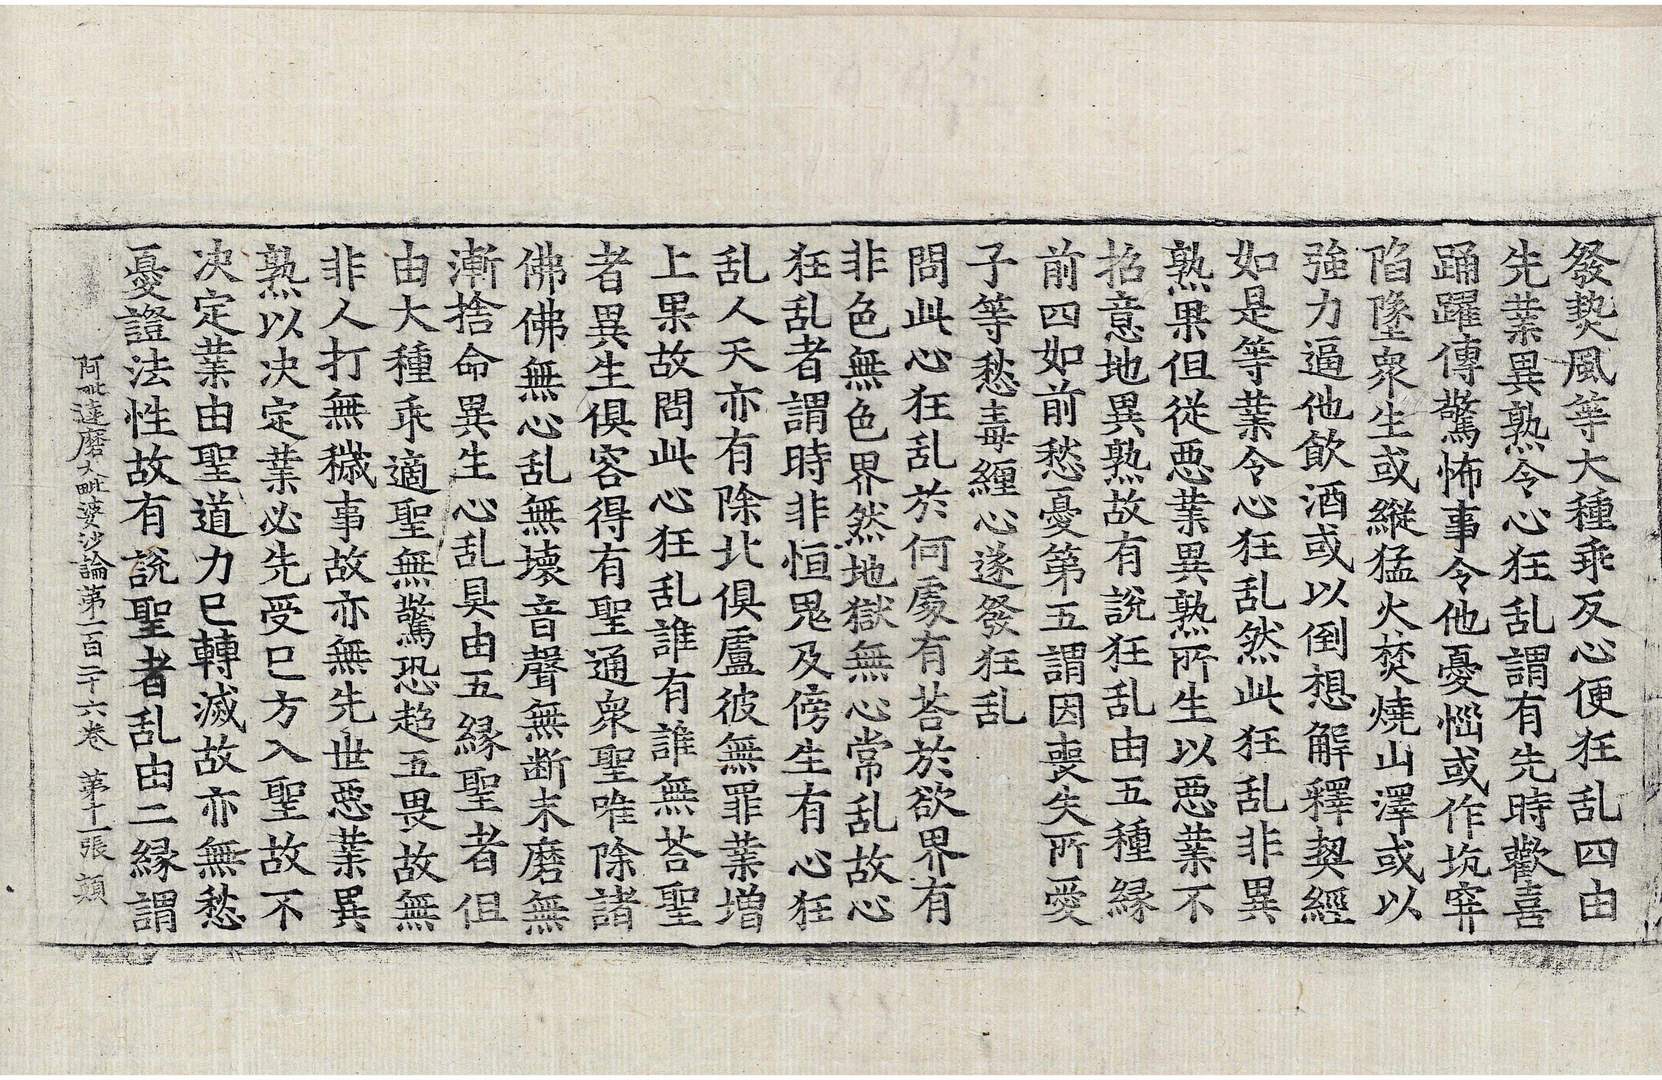 發熱風等大種乖反心便狂乱四由
先業異熟令心狂乱謂有先時歡喜
踊躍傳驚怖事令他憂惱或作坑穽
陷墜衆生或縱猛火焚燒山澤或以
強力逼他飲酒或以倒想解釋契經
如是等業令心狂乱然此狂乱非異
熟果但從惡業異熟所生以惡業不
招意地異熟故有說狂乱由五種緣
前四如前愁憂第五謂因喪失所愛
子等愁毒纏心遂發狂乱
問此心狂乱於何處有荅於欲界有
非色無色界然地獄無心常乱故心
狂乱者謂時非恒鬼及傍生有心狂
乱人天亦有除北俱盧彼無罪業增
上果故問此心狂乱誰有誰無荅聖
者異生俱容得有聖通衆聖唯除諸
佛佛無心乱無壞音聲無断末磨無
漸捨命異生心乱具由五緣聖者但
由大種乖適聖無驚恐超五畏故無
非人打無穢事故亦無先世惡業異
熟以决定業必先受已方入聖故不
决定業由聖道力已轉滅故亦無愁
憂證法性故有說聖者乱由二緣謂
阿毗達磨大毗婆沙論第一百二十六卷 第十一張 顛